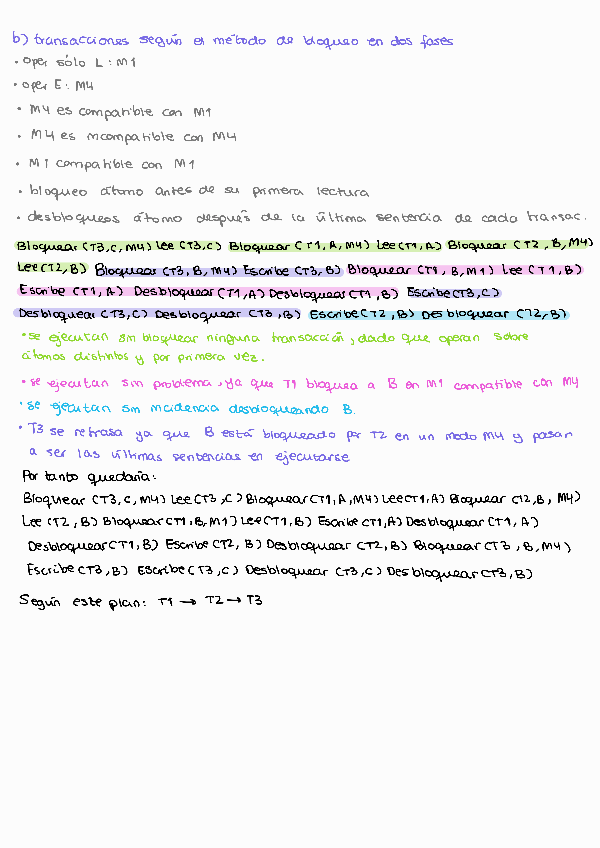 b) transacciones según el método de bloqueo en dos fases
• oper sólo L: M1
• oper E: M4
• M4 es compatible con M1
• M4 es incompatible con M4
• M1 compatible con M1
• bloqueo átomo antes de su primera lectura
• desbloqueos átomo después de la última sentencia de cada transac.
Bloquear (T3,C,M4) Lee (T3,C) Bloquear (T1,A,M4) Lee (T1,A) Bloquear (T2,B,M4)
Lee (T2,B) Bloquear (T3,B,M4) Escribe (T3,B) Bloquear (T1,B,M1) Lee (T1,B)
Escribe (T1,A) Desbloquear (T1,A) Desbloquear (T1,B) Escribe (T3,C)
Desbloquear (T3,C) Desbloquear (T3,B) Escribe (T2,B) Desbloquear (T2,B)
• se ejecutan sin bloquear ninguna transacción, dado que operan sobre
átomos distintos y por primera vez.
• se ejecutan sin problema, ya que T1 bloquea a B en M1 compatible con M4
• se ejecutan sin incidencia desbloqueando B.
• T3 se retrasa ya que B está bloqueado por T2 en un modo M4 y pasan
a ser las últimas sentencias en ejecutarse
Por tanto quedaría:
Bloquear (T3,C,M4) Lee (T3,C) Bloquear (T1,A,M4) Lee (T1,A) Bloquear (T2,B,M4)
Lee (T2,B) Bloquear (T1,B,M1) Lee (T1,B) Escribe (T1,A) Desbloquear (T1,A)
Desbloquear (T1,B) Escribe (T2,B) Desbloquear (T2,B) Bloquear (T3,B,M4)
Escribe (T3,B) Escribe (T3,C) Desbloquear (T3,C) Desbloquear (T3,B)
Según este plan: T1 → T2 → T3